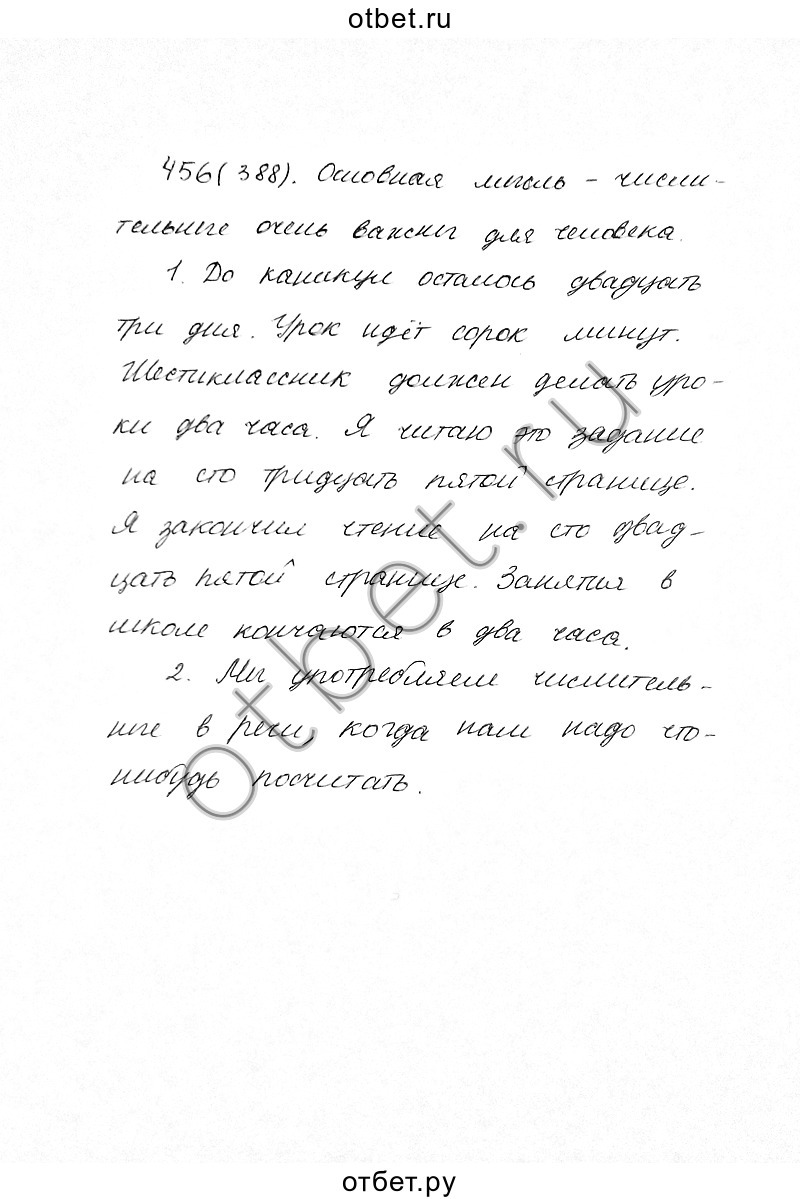 otbet.ru
456(388). Основная мысль – числи-
тельные очень важны для человека.
1. До каникул осталось двадцать
три дня. Урок идёт сорок минут.
Шестиклассник должен делать уро-
ки два часа. Я читаю это задание
на сто тридцать пятой странице.
Я закончил чтение на сто двад-
цать пятой странице. Занятия в
школе кончаются в два часа.
2. Мы употребляем числитель-
ные в речи, когда нам надо что-
нибудь посчитать.
otbet.ru
отбет.ру